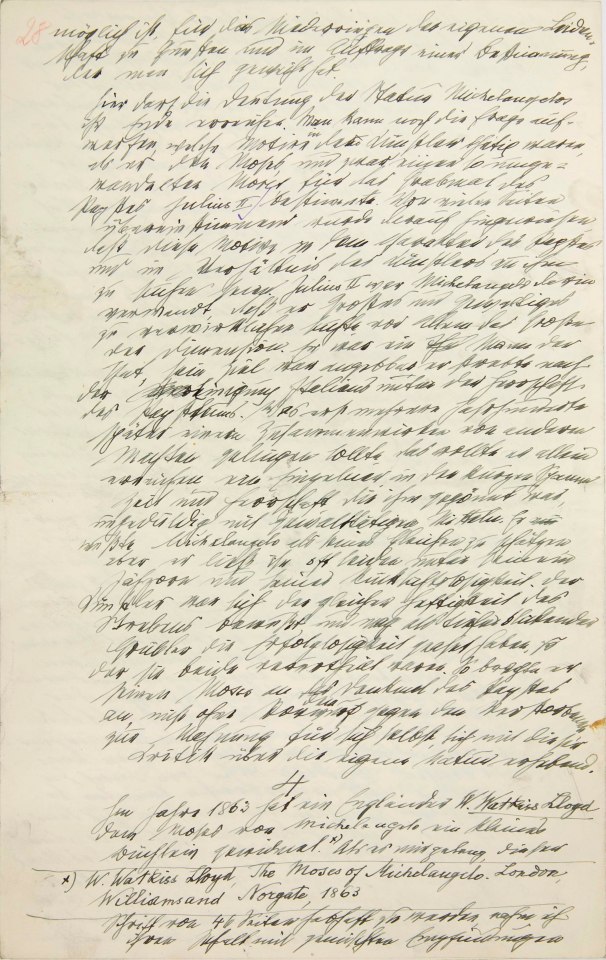 28 möglich ist, für das Niederringen der eigenen Leiden-
schaft zu Gunsten und im Auftrage einer Bestimmung,
der man sich geweiht hat.
Hier darf die Deutung der Statue Michelangelos
ihr Ende erreichen. Man kann noch die Frage auf-
werfen, welche Motive in dem Künstler thätig waren,
als er den Moses und zwar einen so umge-
wandelten Moses für das Grabmal des
Papstes Julius II bestimmte. Von vielen Seiten
übereinstimmend wurde darauf hingewiesen,
daß diese Motive in dem Charakter des Papstes
und im Verhältnis des Künstlers zu ihm
zu suchen seien. Julius II war Michelangelo darin
verwandt, daß er Großes und Gewaltiges
zu verwirklichen suchte, vor allem das Große
der Dimension. Er war ein Mann der
That, sein Ziel war angebbar, er strebte nach
der Einigung Italiens unter der Herrschaft
des Papsttums. Was erst mehrere Jahrhunderte
später einem Zusammenwirken von anderen
Mächten gelingen sollte, das wollte er allein
erreichen, ein Einzelner in der kurzen Spanne
Zeit und Herrschaft, die ihm gegönnt war,
ungeduldig mit gewaltthätigen Mitteln. Er
wußte Michelangelo als seines Gleichen zu schätzen,
aber er ließ ihn oft leiden unter seinem
Jähzorn und seiner Rücksichtslosigkeit. Der
Künstler war sich der gleichen Heftigkeit des
Strebens bewußt und mag als tiefer blickender
Grübler die Erfolglosigkeit geahnt haben, zu
der sie beide verurtheilt waren. So brachte er
seinen Moses an dem Denkmal des Papstes
an, nicht ohne Vorwurf gegen den Verstorbenen,
zur Mahnung für sich selbst, sich mit dieser
Kritik über die eigene Natur erhebend.
4
Im Jahre 1863 hat ein Engländer W. Watkiss Lloyd
dem Moses von Michelangelo ein kleines
Büchlein gewidmet.*) Als es mir gelang, dieser
*) W. Watkiss Lloyd, The Moses of Michelangelo. London,
Williams and Norgate, 1863
Schrift von 46 Seiten habhaft zu werden, nahm ich
ihren Inhalt mit gemischten Empfindungen